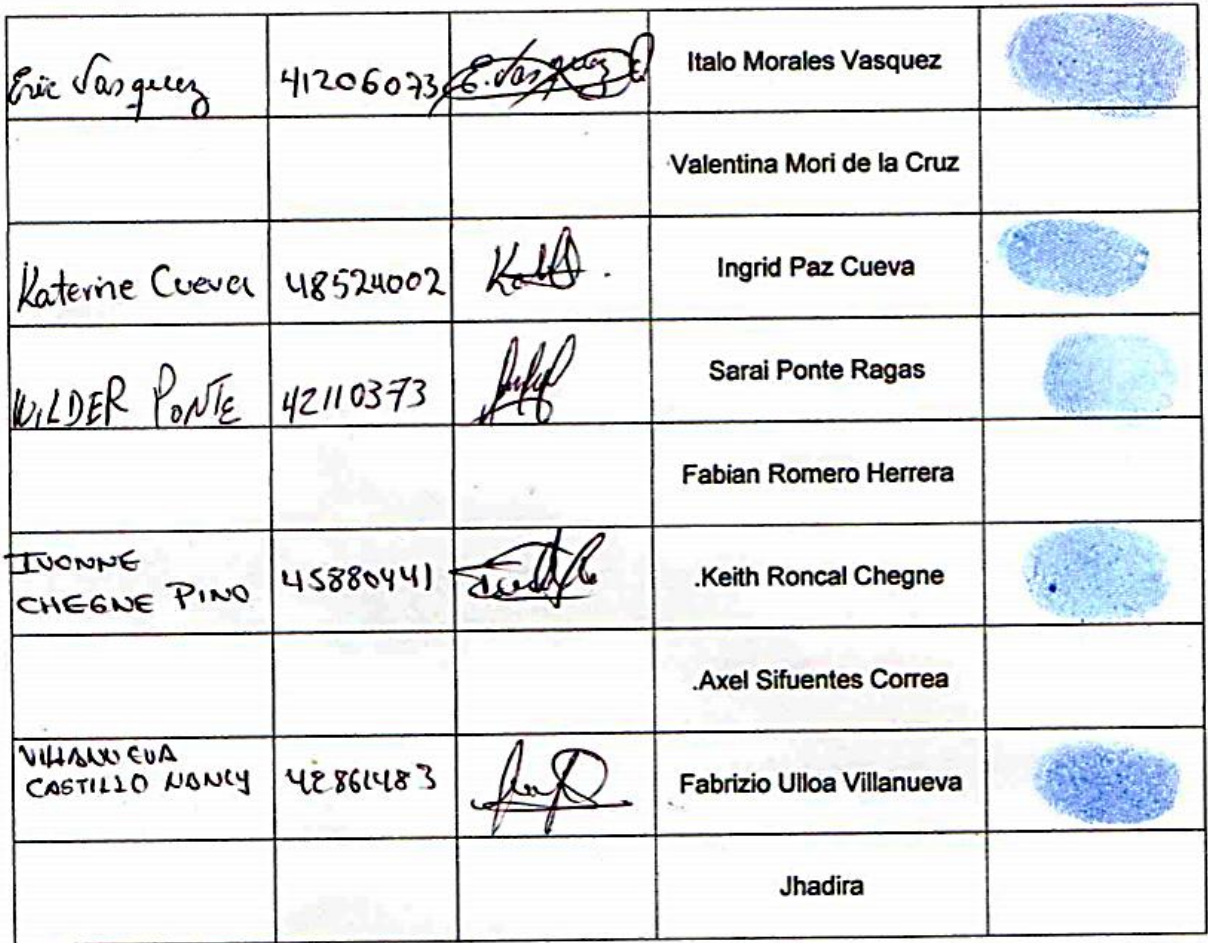 Eric Vasquez 41206073 E. Vasquez Italo Morales Vasquez
Valentina Mori de la Cruz
Katerine Cueva 48524002 Ingrid Paz Cueva
WILDER PONTE 42110373 Sarai Ponte Ragas
Fabian Romero Herrera
IVONNE
CHEGNE PINO 45880441 .Keith Roncal Chegne
.Axel Sifuentes Correa
VILLANUEVA
CASTILLO NANCY 42861483 Fabrizio Ulloa Villanueva
Jhadira